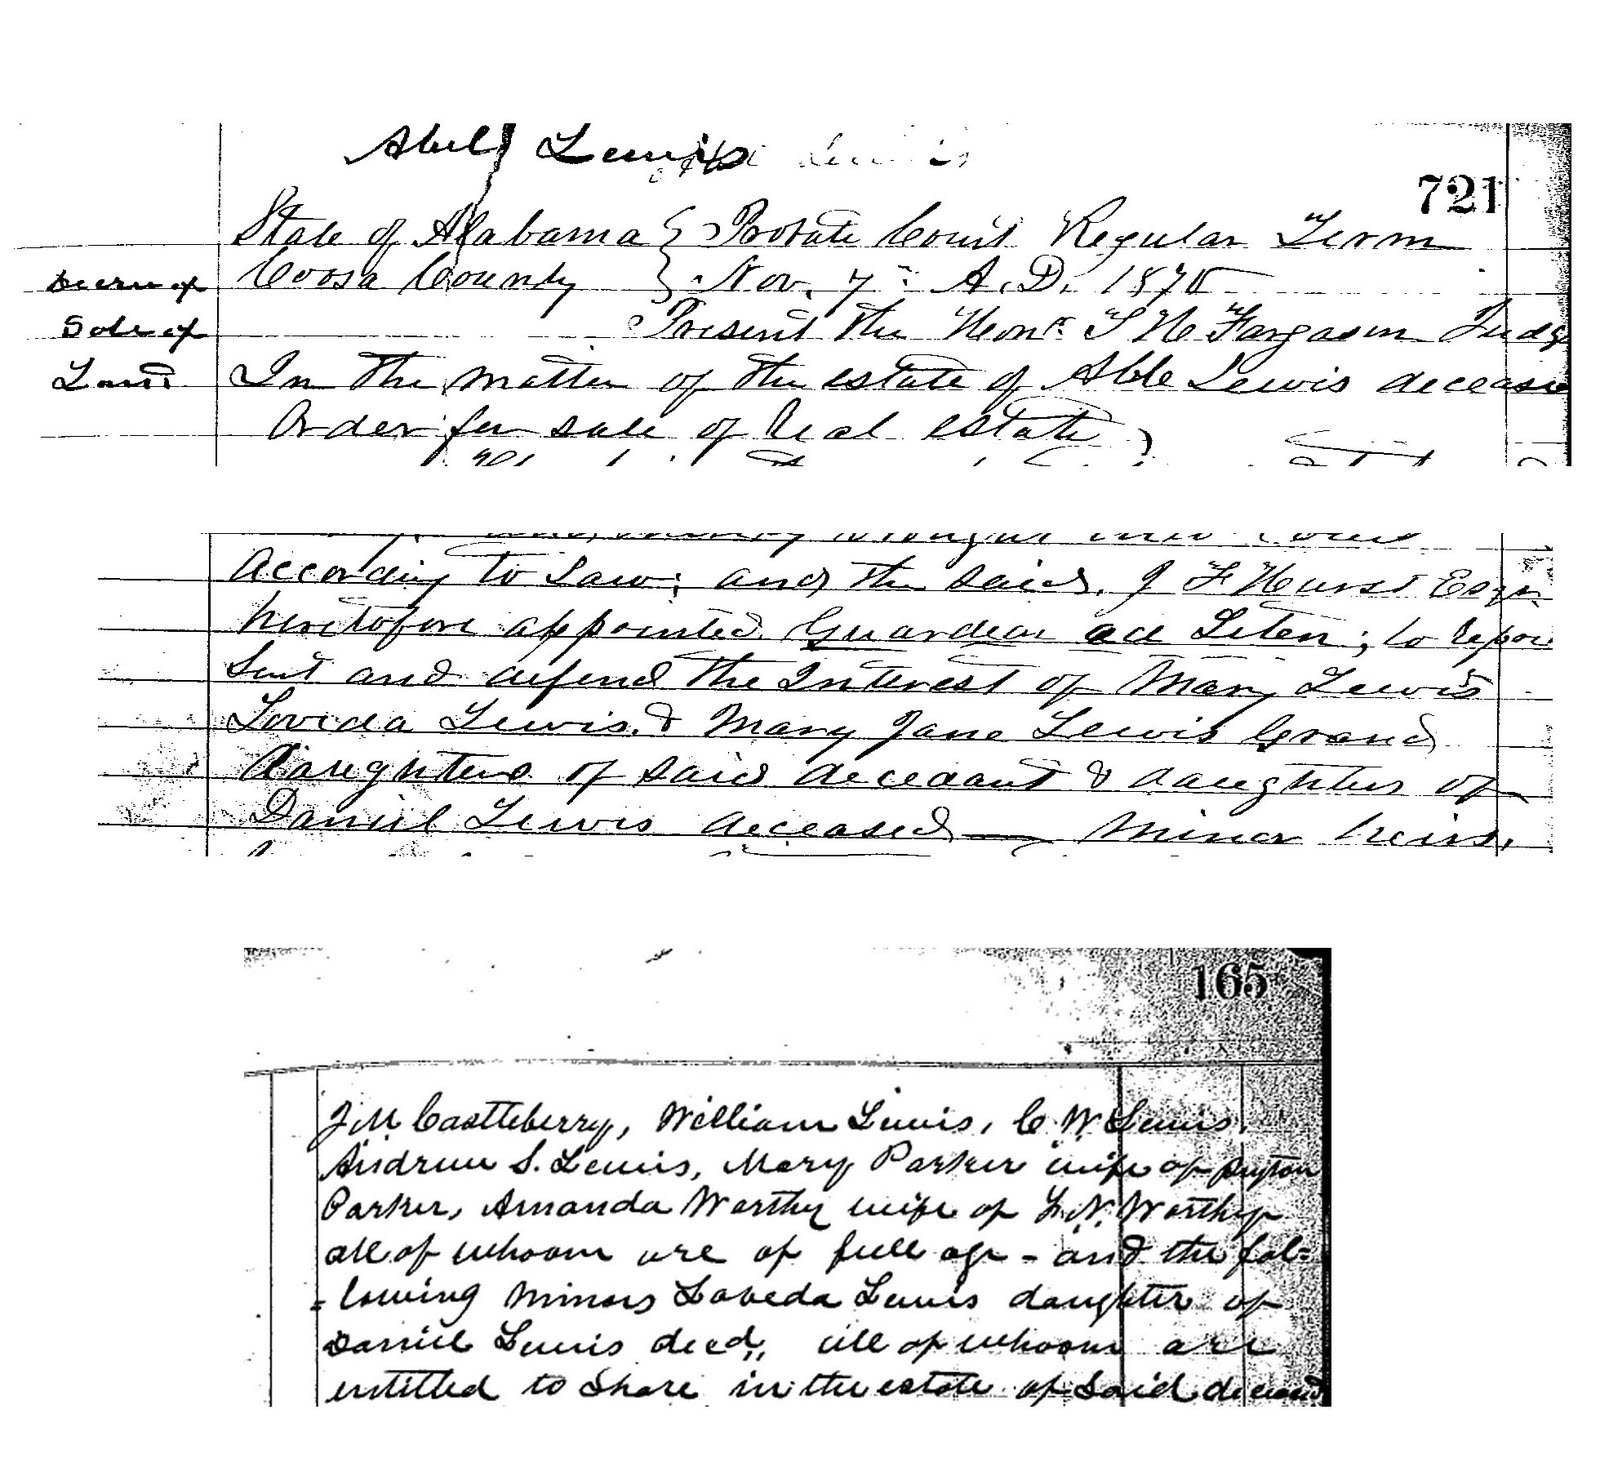 Abel Lewis
721
State of Alabama } Probate Court Regular Term
Coosa County } Nov. 7th A.D. 1870
Decree of
Sale of
Land
Present the Honr. Judge
In the matter of the estate of Able Lewis deceased
Order for sale of Real estate
According to Law; and the said, J F Hurst Esqr.
heretofore appointed Guardian ad Liten; to repre
sent and defend the Interest of Mary Lewis
Loveda Lewis. & Mary Jane Lewis Grand
Daughters of said decedant & daughters of
Daniel Lewis deceased — minor heirs,
165
J M Castleberry, William Lewis, C. W. Lewis,
Andrew S. Lewis, Mary Parker wife of Peyton
Parker, Amanda Worthy wife of L. N. Worthy
all of whoom are of full age - and the fol=
=lowing minors Loveda Lewis daughter of
Daniel Lewis decd,, all of whoom are
entitled to share in the estate of said deceased